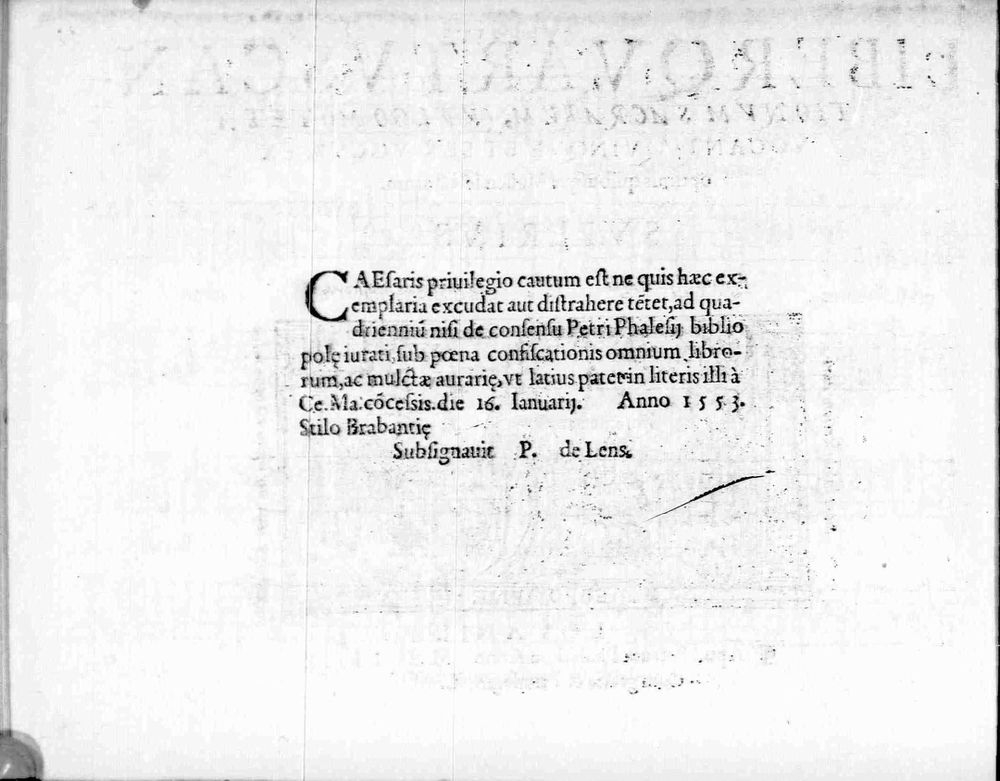 CAESaris priuilegio cautum est ne quis hæc ex-
emplaria excudat aut distrahere tẽtet, ad qua-
drienniũ nisi de consensu Petri Phalesij biblio
polę iurati, sub pœna confiscationis omnium libro-
rum, ac mulctæ aurarię, vt latius patet in literis illi à
Ce. Ma. cõcessis. die 16. Ianuarij. Anno 1553.
Stilo Brabantię
Subsignauit P. de Lens.